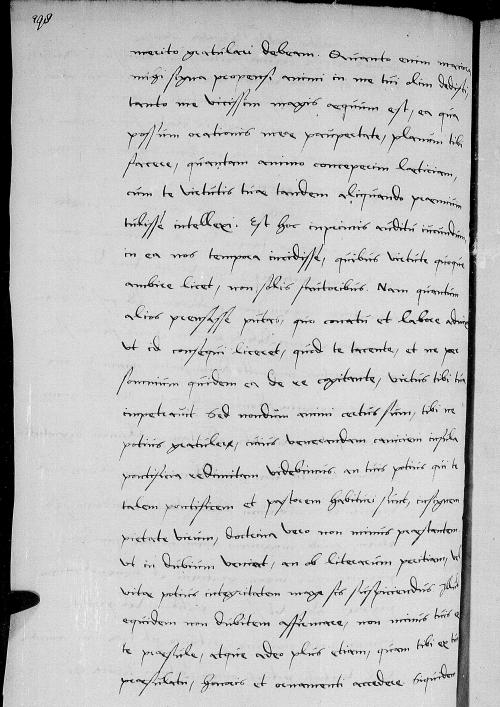 298
merito gratulari debeam. Quanto enim maiora
mihi signa propensi animi in me tui olim dedisti,
tanto me vicissim magis aequum est, ea qua
possum orationis meae paupertate, planum tibi
facere, quantam animo conceperim laeticiam,
cum te virtutis tuae tandem aliquando praemium
tulisse intellexi. Est hoc inprimis auditu iucundum,
in ea nos tempora incidisse, quibus virtute quoque
ambire licet, non solis fautoribus. Nam quantum
alios prensasse putas, quo conatu et labore
ut id consequi liceret, quod te tacente, et ne per
somnium quidem ea de re cogitante, virtus tibi tua
impetravit. Sed nondum animi certus sum, tibi ne
potius gratuler, cuius venerandam caniciem insula
pontificia redimitam videbimus, an tuis potius qui te
talem pontificem et pastorem habituri sint, insignem
pietate virum, doctrina vero non minus praestantem
ut in dubium veniat, an ob literarum peritiam, vel
vitae potius integritatem mage sis suspiciendus
equidem non dubitem affirmare, non minus tuis
te praesule, atque adeo plus etiam, quam tibi ex
praesulatu, honoris et ornamenti accedere siquidem